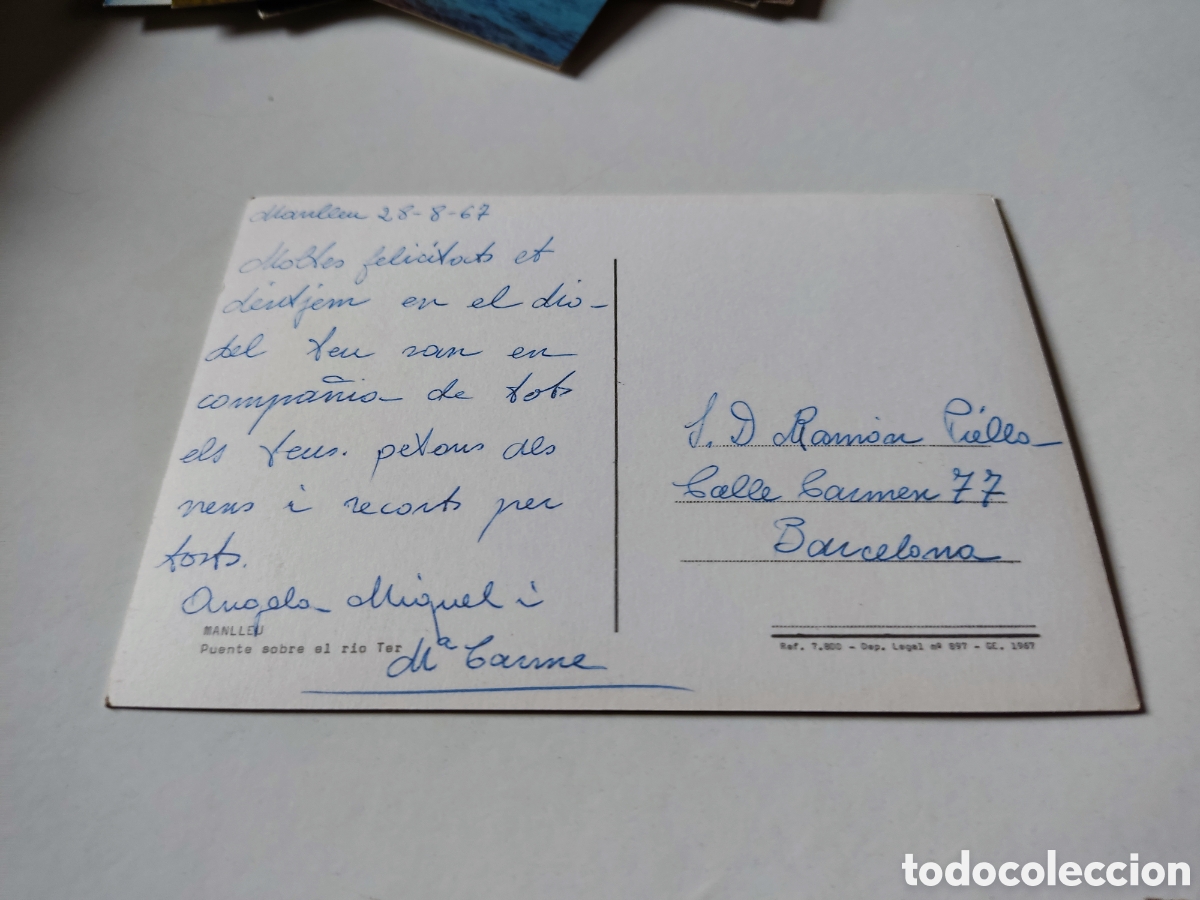 Manlleu 28-8-67
Moltes felicitats et
dentjem en el dia
del teu san en
compañia de tots
els teus. petons dels
nens i recorts per
tots.
Angela Miquel i
Mª Carme
MANLLEU
Puente sobre el río Ter
S. D Ramón Piella
Calle Carmen 77
Barcelona
Ref. 7.800 - Dep. Legal nº 897 - GE. 1967
todocoleccion